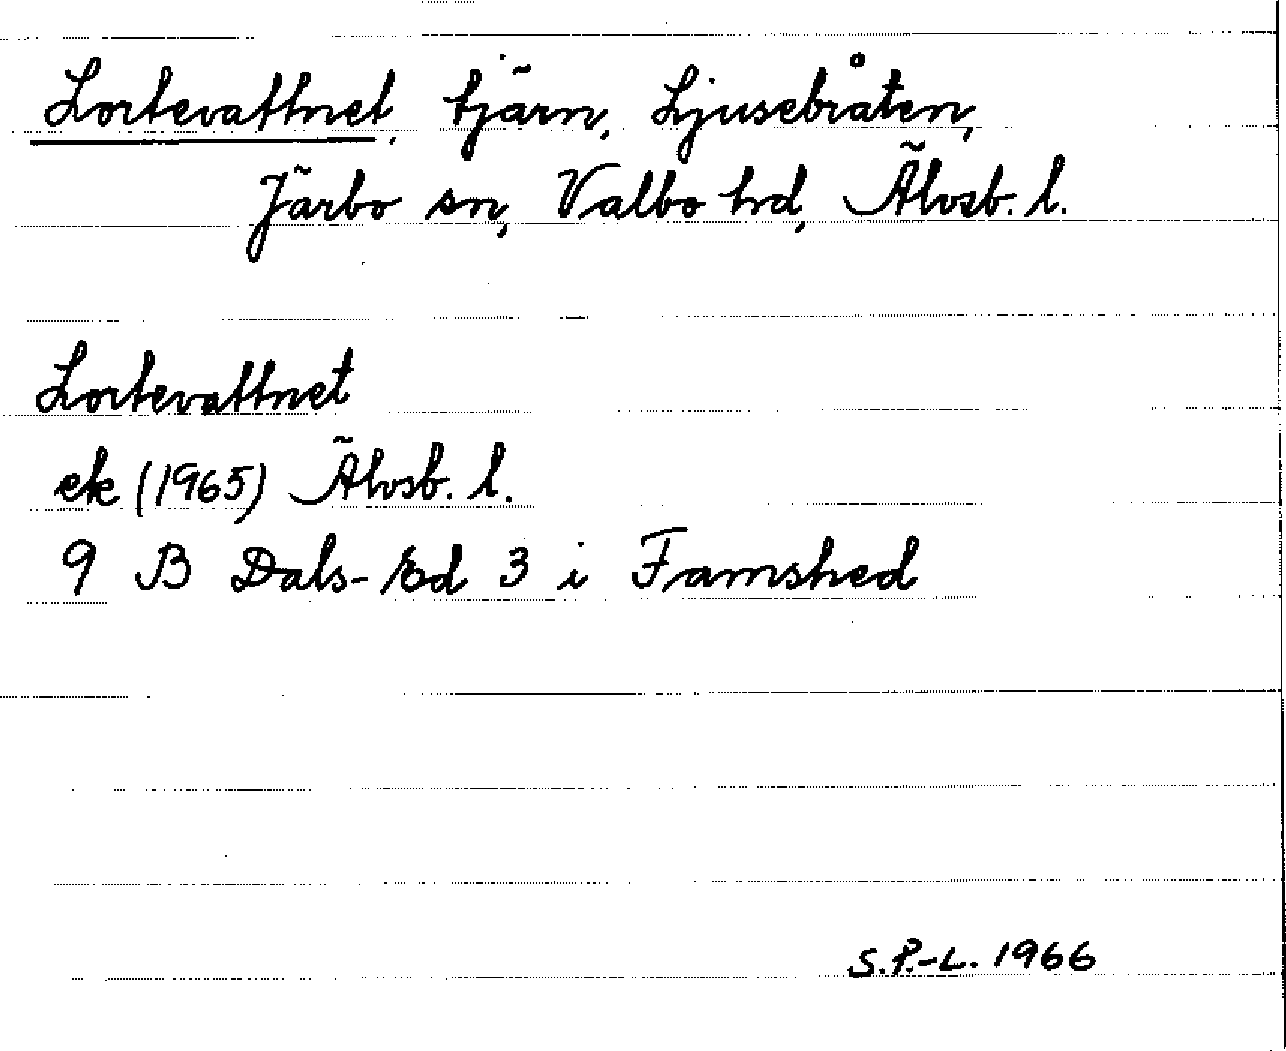 Lortevattnet, tjärn, Ljusebråten,
Järbo sn, Valbo hd, Älvsb. l.
Lortevattnet
ek (1965) Älvsb. l.
9 B Dals-Ed 3 i Famshed
S.P.-L. 1966